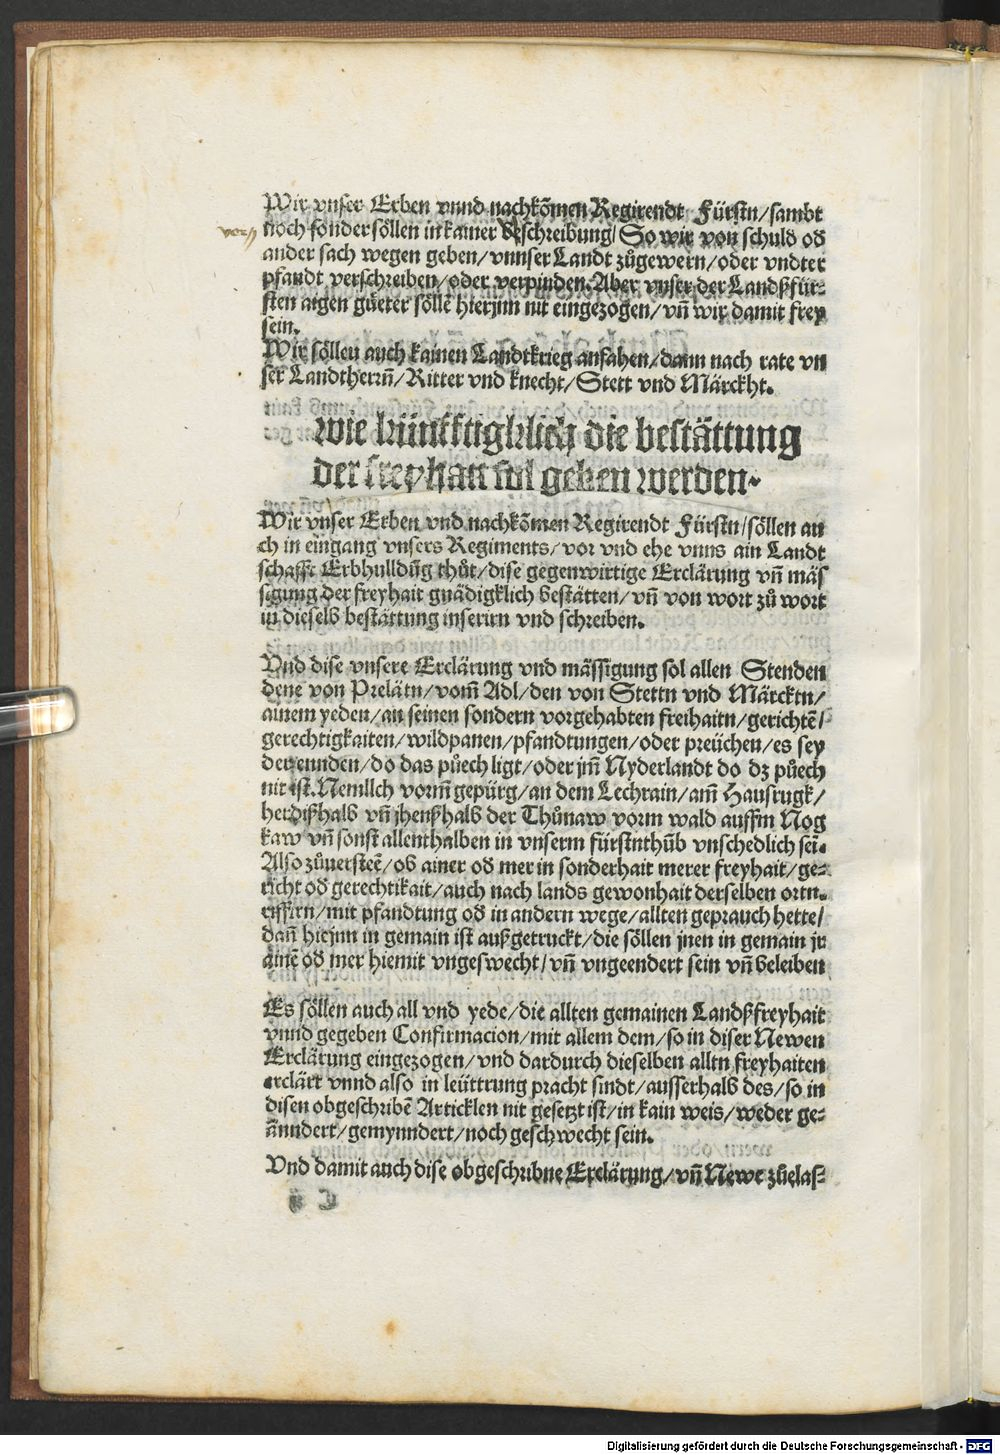 Wir vnser Erben vnnd nachkōmen Regirendt Fürstn/sambt
vor//
noch sonder söllen in kainer Vschreibung/ So wir von schuld od
ander sach wegen geben/vnnser Landt zůgewern/oder vndter
pfandt verschreiben/oder verpinden. Aber vnser der Landßfür⸗
sten aigen gůeter söllē hierjnn nit eingezogen/vñ wir damit frey
sein.
Wir söllen auch kainen Landtkrieg anfahen/dann nach rate vn
ser Landtherrñ/Ritter vnd knecht/Stett vnd Märckht.
wie künfftigklich die bestättung
der freyhait sol geben werden.
Wir vnser Erben vnd nachkōmen Regirendt Fürstn/söllen au
ch in eingang vnsers Regiments/vor vnd ehe vnns ain Landt
schafft Erbhulldūg thůt/dise gegenwirtige Erclärung vñ mäs
sigung der freyhait gnädigklich bestätten/vñ von wort zů wort
in dieselb bestättung inserirn vnd schreiben.
Vnd dise vnsere Erclärung vnd mässigung sol allen Stenden
dene von Prelätn/vom̄ Adl/den von Stettn vnd Märcktn/
ainem yeden/an seinen sondern vorgehabten freihaitn/gerichtē/
gerechtigkaiten/wildpanen/pfandtungen/oder preüchen/es sey
der ennden/do das půech ligt/oder jm̄ Nyderlandt do dz půech
nit ist. Nemlich vorm̄ gepürg/an dem Lechrain/am̄ Hausrugk/
herdißhalb vñ jhenßhalb der Thůnaw vorm wald auffm Nog
kaw vñ sonst allenthalben in vnserm fürstnthūb vnschedlich sein.
Also zůuersteē/ob ainer od mer in sonderhait merer freyhait/ge⸗
richt od gerechtikait/auch nach lands gewonhait derselben ortn.
riffirn/mit pfandtung od in andern wege/allten geprauch hette/
dañ hierjnn in gemain ist außgetruckt/die söllen jnen in gemain jr
ainē od mer hiemit vngeswecht/vñ vngeendert sein vñ beleiben
Es söllen auch all vnd yede/die allten gemainen Landßfreyhait
vnnd gegeben Confirmacion/mit allem dem/so in diser Newen
Erclärung eingezogen/vnd dardurch dieselben alltn freyhaiten
erclärt vnnd also in leüttrung pracht sindt/ausserhalb des/so in
disen obgeschribē Articklen nit gesetzt ist/in kain weis/weder ge⸗
änndert/gemynndert/noch geschwecht sein.
Vnd damit auch dise obgeschribne Erclärung/vñ Newe zůelas⸗
Digitalisierung gefördert durch die Deutsche Forschungsgemeinschaft - DFG